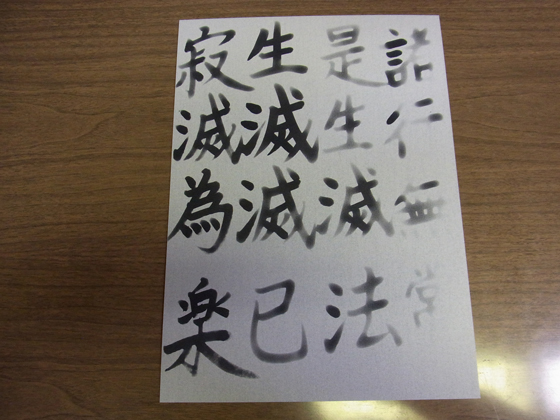 諸行無常
是生滅法
生滅滅已
寂滅為楽